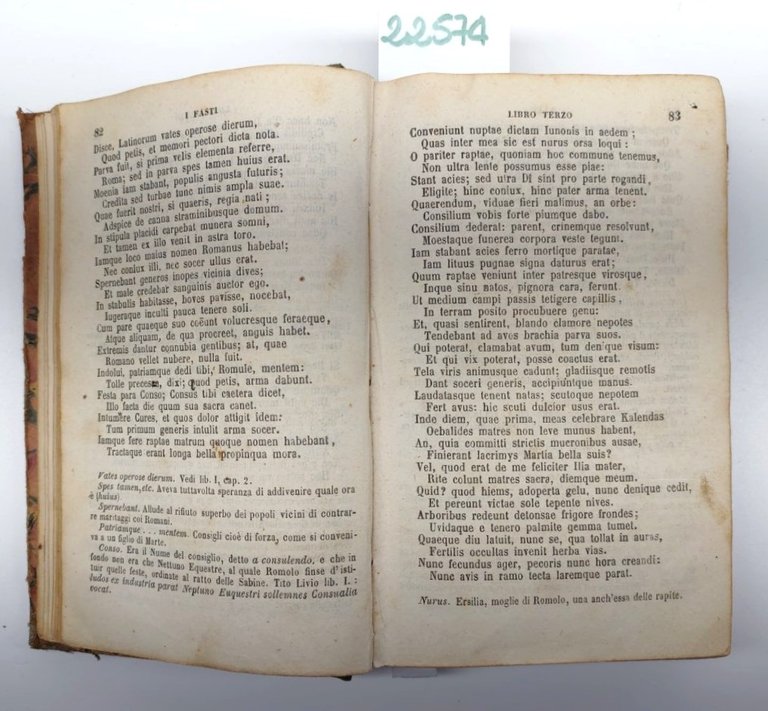 22574
82
I FASTI
Disce, Latinorum vates operose dierum,
Quod petis, et memori pectori dicta nota.
Parva fuit, si prima velis elementa referre,
Roma; sed in parva spes tamen huius erat.
Moenia iam stabant, populis angusta futuris;
Credita sed turbae tunc nimis ampla suae.
Quae fuerit nostri, si quaeris, regia, nati;
Adspice de canna straminibusque domum.
In stipula placidi carpebat munera somni,
Et tamen ex illo venit in astra toro.
Iamque loco maius nomen Romanus habebat;
Nec coniux illi, nec socer ullus erat.
Spernebant generos inopes vicinia dives;
Et male credebar sanguinis auctor ego.
In stabulis habitasse, boves pavisse, nocebat,
Iugeraque inculti pauca tenere soli.
Cum pare quaeque suo coeunt volucresque feraeque,
Atque aliquam, de qua procreet, anguis habet.
Extremis dantur connubia gentibus; at, quae
Romano vellet nubere, nulla fuit.
Indolui, patriamque dedi tibi, Romule, mentem:
Tolle preces, dixi; quod petis, arma dabunt.
Festa para Conso; Consus tibi caetera dicet,
Illo facta die quum sua sacra canet.
Intumere Cures, et quos dolor attigit idem:
Tum primum generis intulit arma socer.
Iamque fere raptae matrum quoque nomen habebant,
Tractaque erant longa bella propinqua mora.
Vates operose dierum. Vedi lib. I, cap. 2.
Spes tamen, etc. Aveva tuttavolta speranza di addivenire quale ora
è (huius).
Spernebant. Allude al rifiuto superbo dei popoli vicini di contrar-
re maritaggi coi Romani.
Patriamque . . . mentem. Consigli cioè di forza, come si conveni-
va a un figlio di Marte.
Conso. Era il Nume del consiglio, detto a consulendo, e che in
fondo non era che Nettuno Equestre, al quale Romolo finse d' isti-
tuir quelle feste, ordinate al ratto delle Sabine. Tito Livio lib. I. :
ludos ex industria parat Neptuno Euquestri sollemnes Consualia
vocat.
LIBRO TERZO
83
Conveniunt nuptae dictam Iunonis in aedem;
Quas inter mea sic est nurus orsa loqui:
O pariter raptae, quoniam hoc commune tenemus,
Non ultra lente possumus esse piae:
Stant acies; sed utra Dî sint pro parte rogandi,
Eligite; hinc coniux, hinc pater arma tenent.
Quaerendum, viduae fieri malimus, an orbe:
Consilium vobis forte piumque dabo.
Consilium dederat: parent, crinemque resolvunt,
Moestaque funerea corpora veste tegunt.
Iam stabant acies ferro mortique paratae,
Iam lituus pugnae signa daturus erat;
Quum raptae veniunt inter patresque virosque,
Inque sinu natos, pignora cara, ferunt.
Ut medium campi passis tetigere capillis,
In terram posito procubuere genu:
Et, quasi sentirent, blando clamore nepotes
Tendebant ad avos brachia parva suos.
Qui poterat, clamabat avum, tum denique visum:
Et qui vix poterat, posse coactus erat.
Tela viris animusque cadunt; gladiisque remotis
Dant soceri generis, accipiuntque manus.
Laudatasque tenent natas; scutoque nepotem
Fert avus: hic scuti dulcior usus erat.
Inde diem, quae prima, meas celebrare Kalendas
Oebalides matres non leve munus habent,
An, quia committi strictis mucronibus ausae,
Finierant lacrymys Martia bella suis?
Vel, quod erat de me feliciter Ilia mater,
Rite colunt matres sacra, diemque meum.
Quid? quod hiems, adoperta gelu, nunc denique cedit,
Et pereunt victae sole tepente nives.
Arboribus redeunt detonsae frigore frondes;
Uvidaque e tenero palmite gemma tumet.
Quaeque diu latuit, nunc se, qua tollat in auras,
Fertilis occultas invenit herba vias.
Nunc fecundus ager, pecoris nunc hora creandi:
Nunc avis in ramo tecta laremque parat.
Nurus. Ersilia, moglie di Romolo, una anch'essa delle rapite.